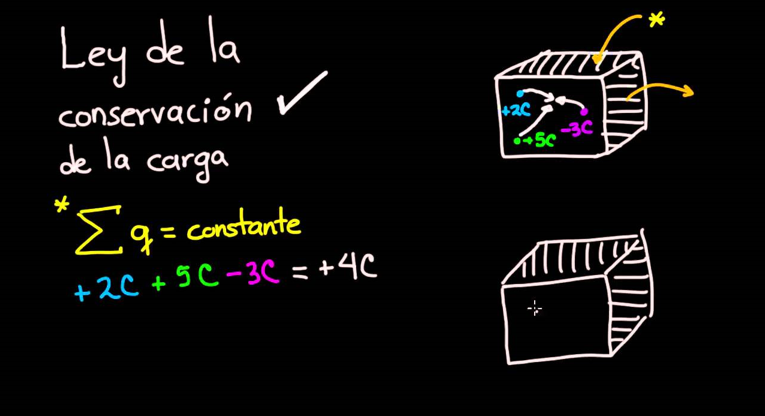 Ley de la
conservación ✓
de la carga
* Σ q = constante
+2C + 5C - 3C = +4C
*
+2C
-3C
+5C